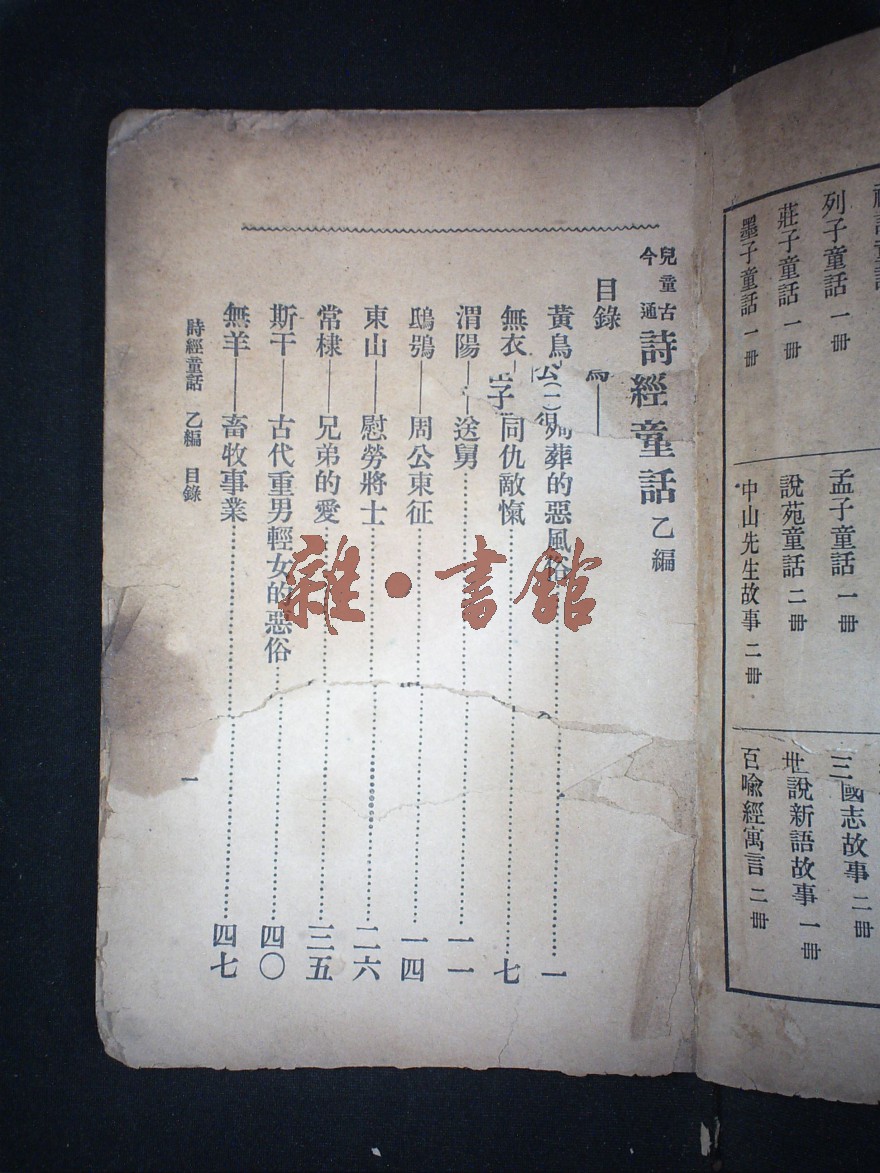 兒童古今通
詩經童話 乙編
目錄
黃鳥——殉葬的惡風俗…………一
無衣——同仇敵愾…………七
渭陽——送舅…………一一
鴟鴞——周公東征…………一四
東山——慰勞將士…………二六
常棣——兄弟的愛…………三五
斯干——古代重男輕女的惡俗…………四〇
無羊——畜牧事業…………四七
詩經童話 乙編 目錄
一
列子童話 一冊
莊子童話 一冊
墨子童話 一冊
孟子童話 一冊
說苑童話 二冊
中山先生故事 二冊
三國志故事 二冊
世說新語故事 一冊
百喩經寓言 二冊
雜·書館